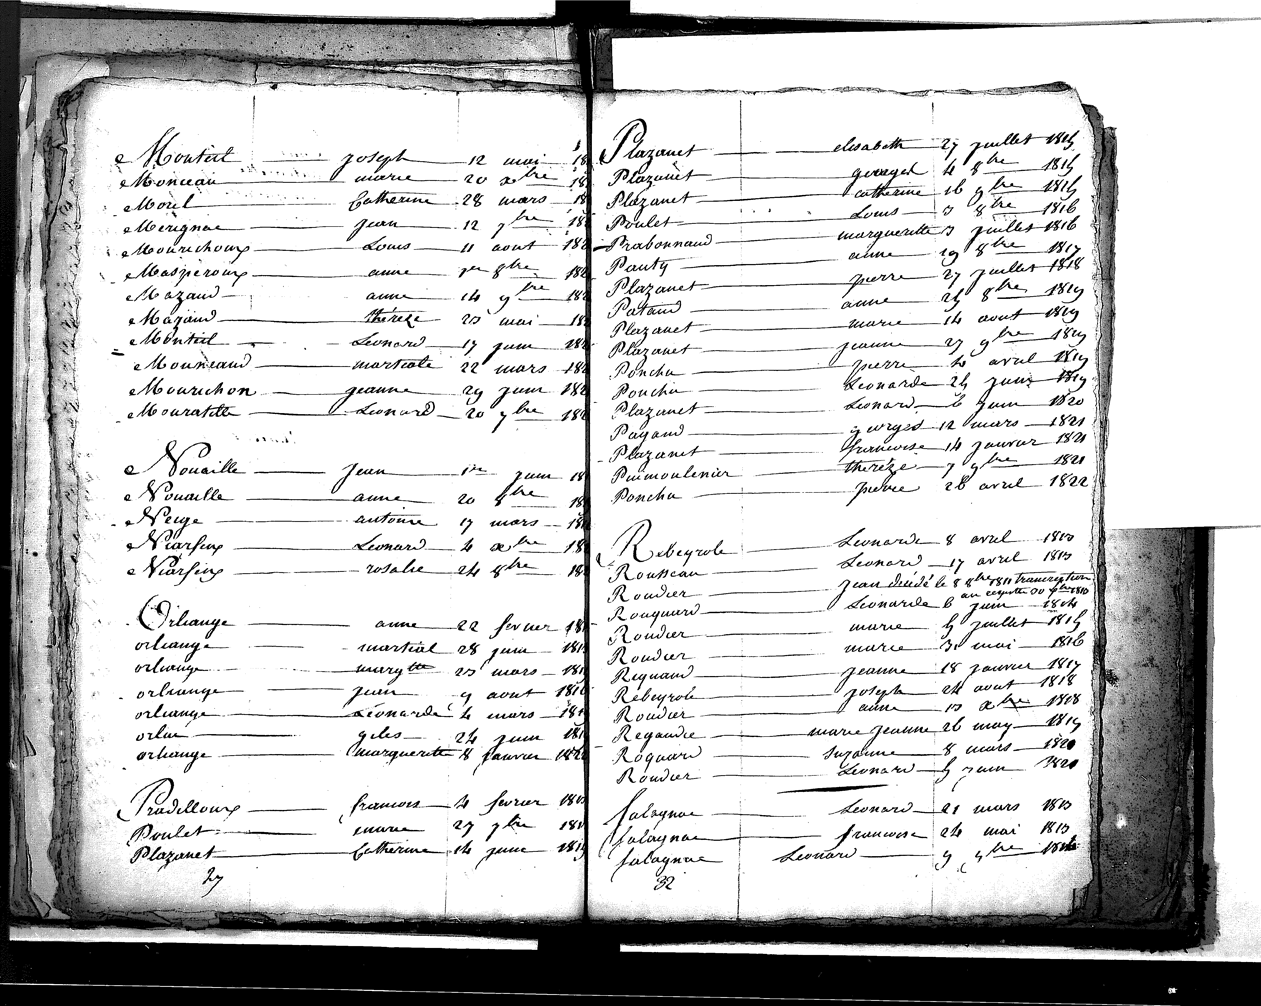 Monteil joseph 12 mai 18
Monceau marie 20 xbre 18
Morel Catherine 28 mars 18
Merignac jean 12 7bre 18
Mourichoux Louis 11 aout 182
Masperoux anne 1er 8bre 182
Mazaud anne 14 9bre 182
Mazaud thérèze 23 mai 18
Monteil Leonard 17 juin 182
Mouneaud martiale 22 mars 182
Mourichon jeanne 29 juin 182
Mouratille Leonard 20 7bre 182
Nouaille jean 1er juin 18
Nouaille anne 20 8bre 18
Neige antoine 17 mars 18
Niarfeix Leonard 4 xbre 18
Niarfeix rosalie 24 8bre 18
Orliange anne 22 fevrier 181
orliange martial 28 juin 181
orliange margtte 23 mars 181
orliange jean 9 aout 1816
orliange Léonarde 4 mars 181
orliac giles 24 juin 181
orliange margueritte 8 janvier 182
Pradilloux francois 4 fevrier 181
Poulet marie 27 7bre 181
Plazanet Catherine 14 juin 181
27
Plazanet elisabeth 27 juillet 1815
Plazanet georges 4 8bre 1815
Plazanet catherine 16 9bre 1815
Poulet Louis 3 8bre 1816
Prabonnaud marguerette 3 juillet 1816
Pauty anne 19 8bre 1817
Plazanet pierre 27 juillet 1818
Pataud anne 25 8bre 1819
Plazanet marie 14 aout 1819
Plazanet jeanne 27 9bre 1819
Poncha pierre 10 avril 1819
Poncha Leonarde 25 juin 1819
Plazanet Leonard 6 juin 1820
Pagand georges 12 mars 1821
Plazanet francoise 14 janvier 1821
Poumoulenier thérèze 7 9bre 1821
Poncha pierre 28 avril 1822
Rebeyrole Leonarde 8 avril 1813
Rousseau Leonard 17 avril 1813
Roudier jean décédé le 8 8bre 1811 transcription
Rouquard Leonarde 6 juin 1814
Roudier marie 5 juillet 1815
Roudier marie 31 mai 1816
Riquaud jeanne 18 janvier 1817
Rebeyrole joseph 24 aout 1818
Roudier anne 13 xbre 1818
Regaudie marie jeanne 26 may 1819
Roquard Suzanne 8 mars 1820
Roudier Leonard 5 juin 1821
Salagnac Leonard 21 mars 1813
Salagnac francoise 24 mai 1813
Salagnac Leonard 9 9bre 1814
32